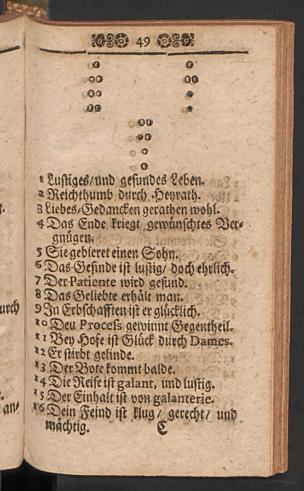 49
1 Lustiges/und gesundes Leben.
2 Reichthumb durch Heyrath.
3 Liebes-Gedancken gerathen wohl.
4 Das Ende kriegt gewünschtes Ver-
gnügen.
5 Sie gebieret einen Sohn.
6 Das Gesinde ist lustig/ doch ehrlich.
7 Der Patiente wird gesund.
8 Das Geliebte erhält man.
9 In Erbschafften ist er glücklich.
10 Den Process gewinnt Gegentheil.
11 Bey Hofe ist Glück durch Dames.
12 Er stirbt gelinde.
13 Der Bote kommt balde.
14 Die Reise ist galant, und lustig.
15 Der Einhalt ist von galanterie.
16 Dein Feind ist klug/ gerecht/ und
mächtig. C